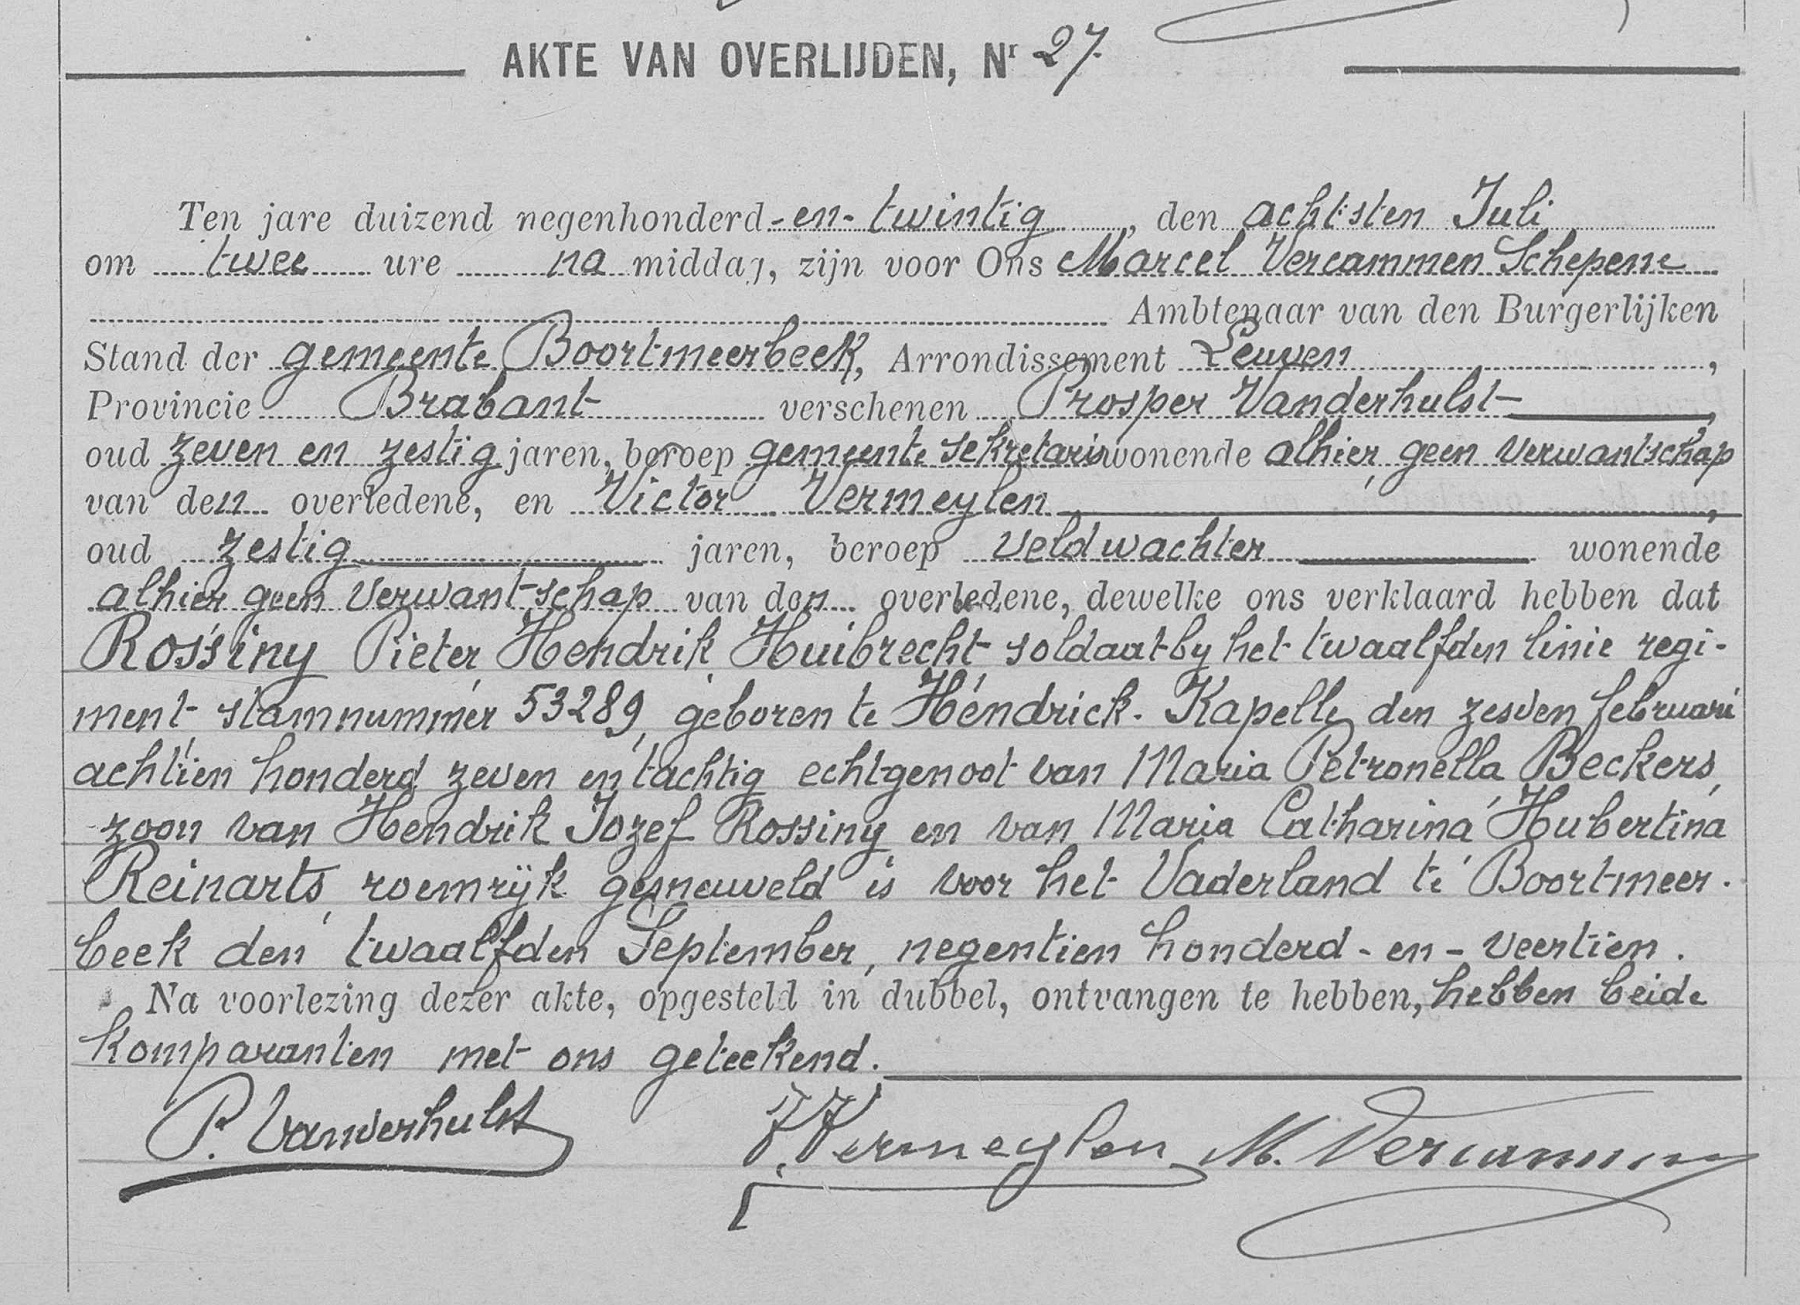 AKTE VAN OVERLIJDEN, Nr 27.
Ten jare duizend negenhonderd -en- twintig, den achtsten Juli
om twee ure na middag, zijn voor Ons Marcel Vercammen Schepene
Ambtenaar van den Burgerlijken
Stand der gemeente Boortmeerbeek, Arrondissement Leuven,
Provincie Brabant verschenen Prosper Vanderhulst,
oud zeven en zestig jaren, beroep gemeente sekretaris wonende alhier, geen verwantschap
van den overledene, en Victor Vermeylen,
oud zestig jaren, beroep veldwachter wonende
alhier geen verwantschap van den overledene, dewelke ons verklaard hebben dat
Rossiny Pieter Hendrik Huibrecht soldaat by het twaalfden linie regi-
ment stamnummer 53289, geboren te Hendrick-Kapelle den zesden februari
achtien honderd zeven en tachtig echtgenoot van Maria Petronella Beckers,
zoon van Hendrik Jozef Rossiny en van Maria Catharina Hubertina
Reinarts, roemrijk gesneuveld is voor het Vaderland te Boortmeer-
beek den twaalfden September, negentien honderd-en-veertien.
Na voorlezing dezer akte, opgesteld in dubbel, ontvangen te hebben, hebben beide
komparanten met ons geteekend.
P. Vanderhulst V. Vermeylen M. Vercammen